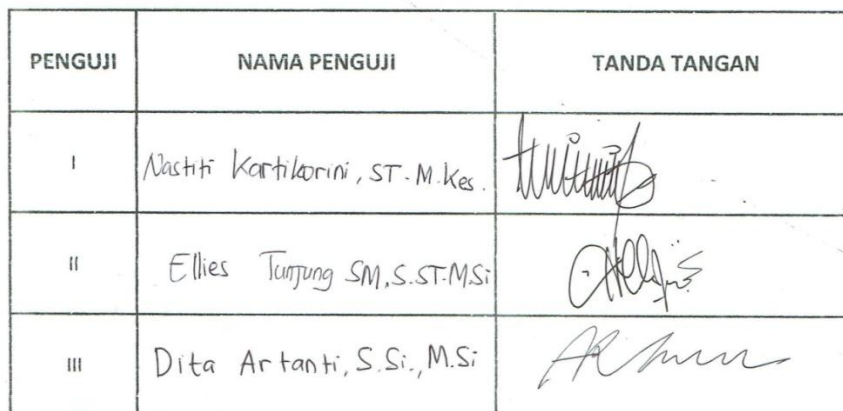 PENGUJI NAMA PENGUJI TANDA TANGAN
I Nastiti Kartikorini, ST. M.Kes.
II Ellies Tunjung SM, S.ST.MSi
III Dita Artanti, S.Si., M.Si